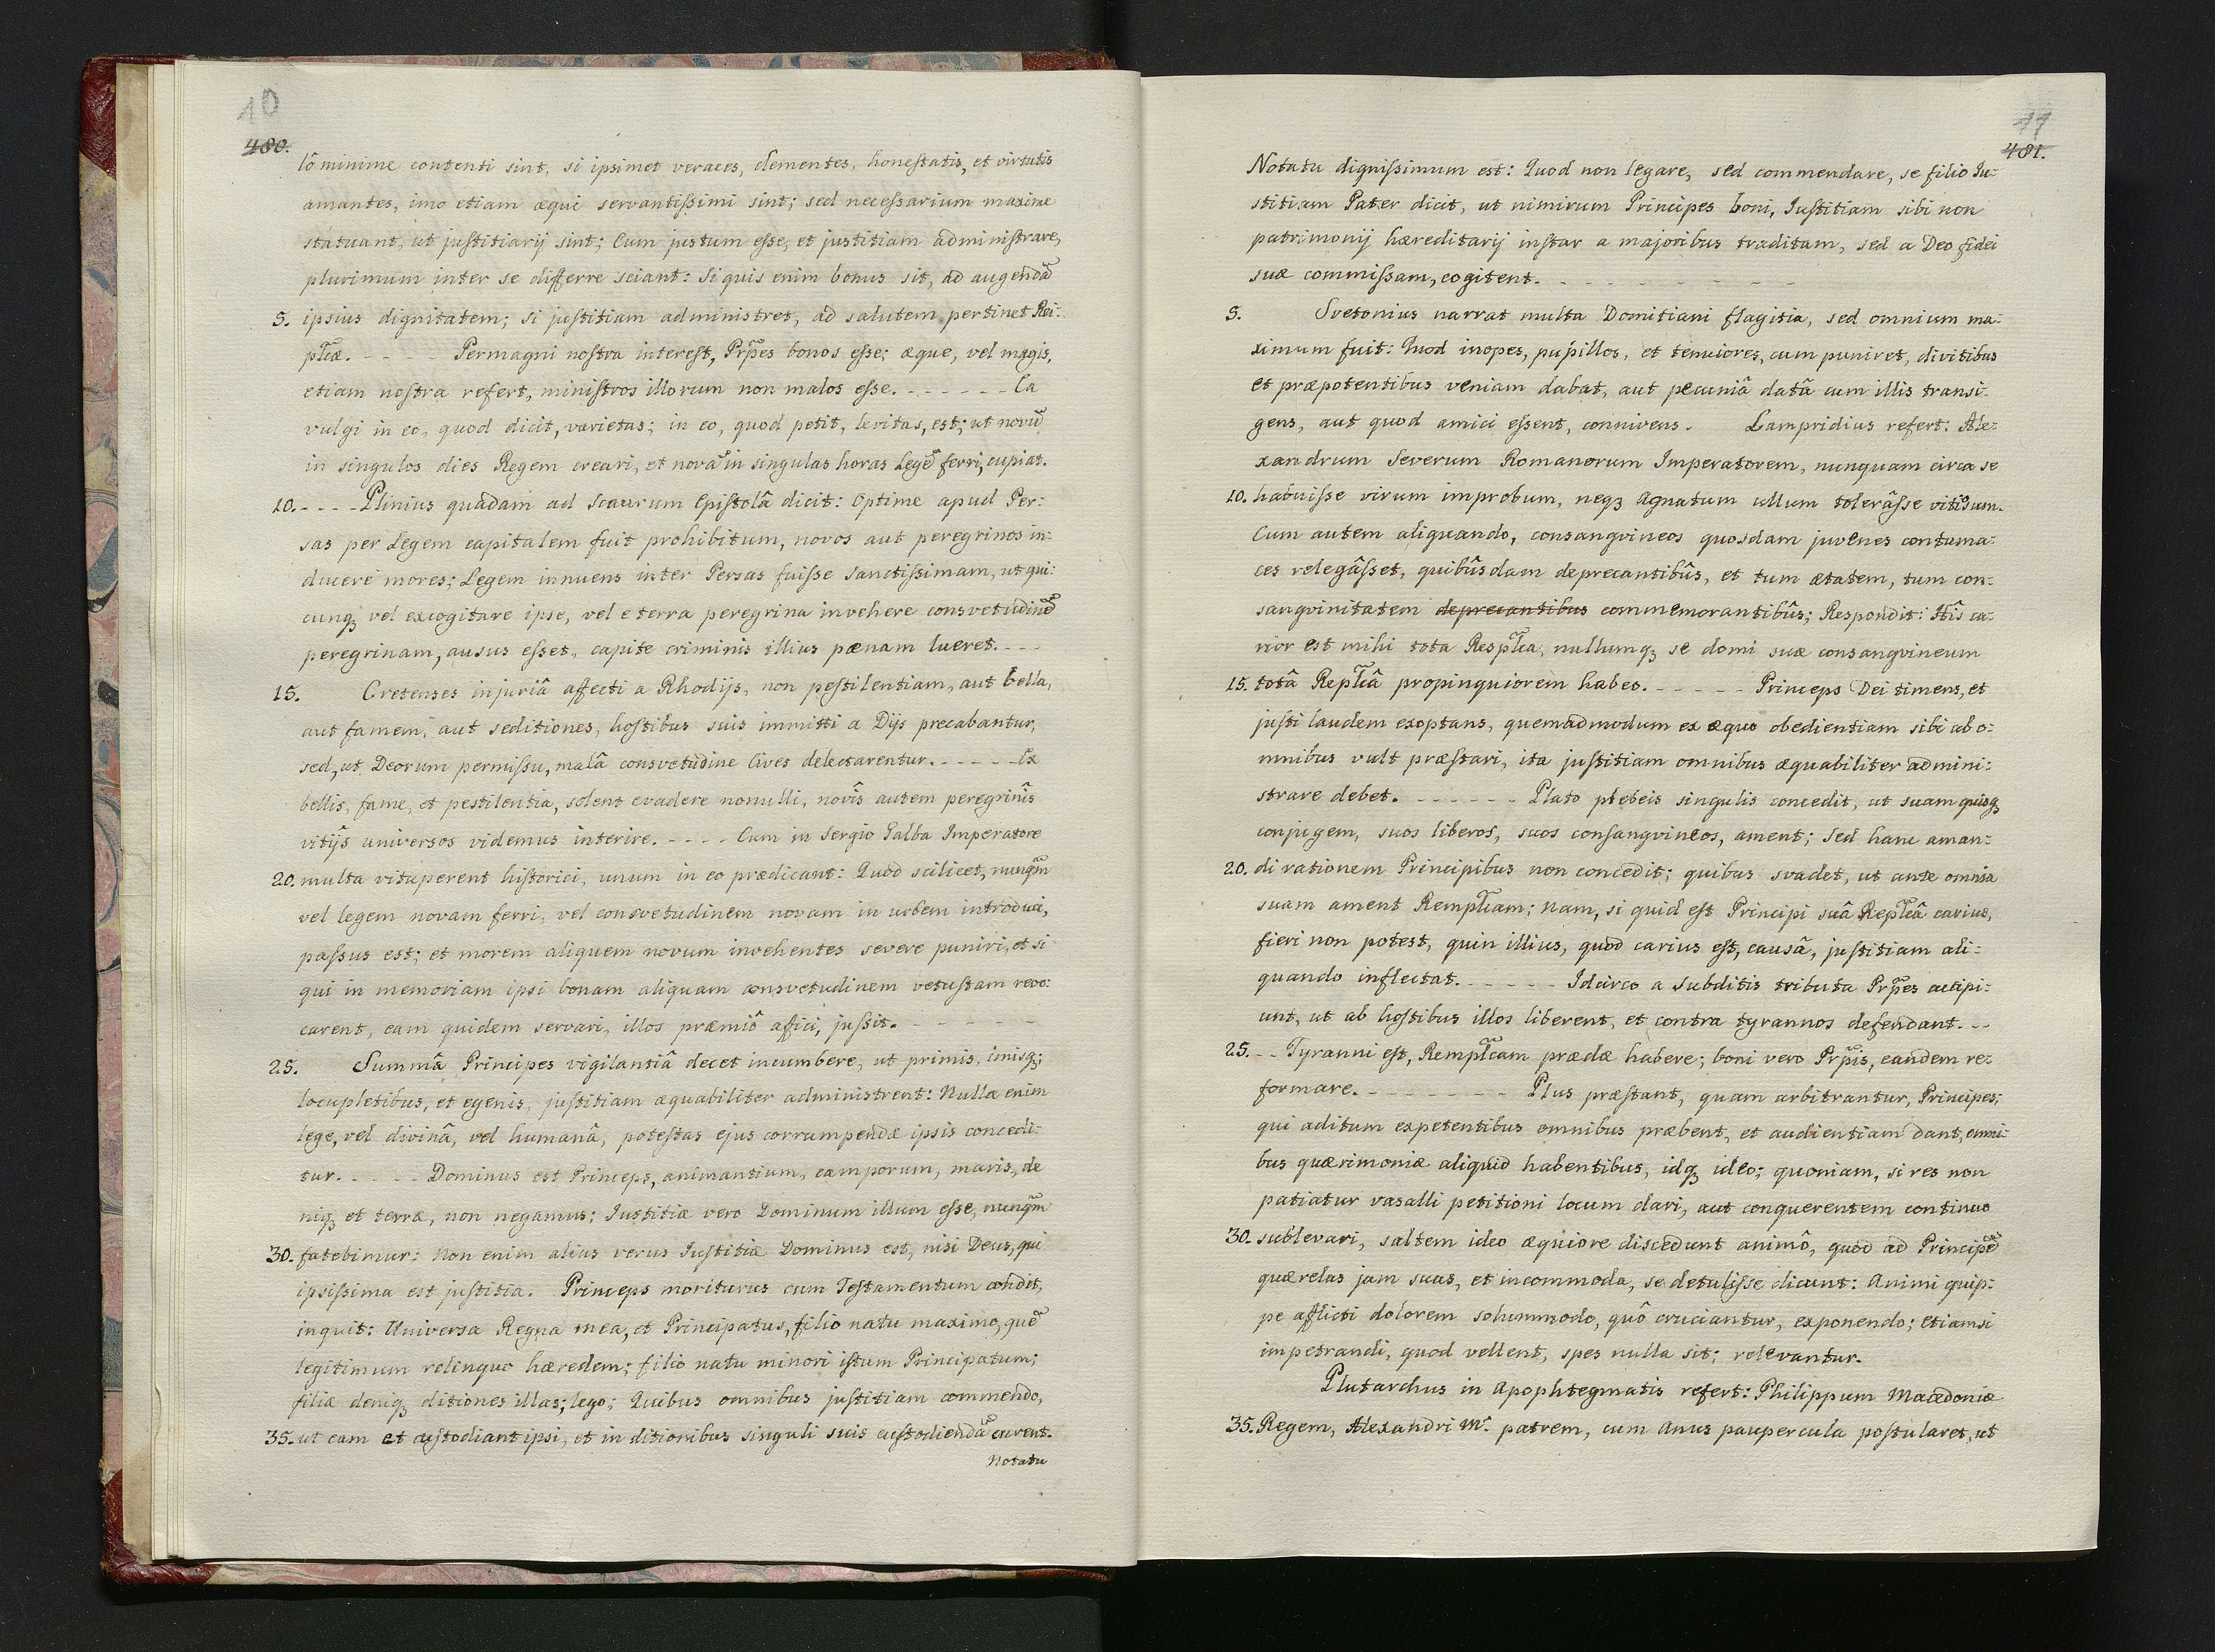 10
480.
lô minime contenti sint, si ipsimet veraces, clementes, honestatis, et virtutis
amantes, imo etiam æqui servantißimi sint; sed neceßarium maxime
statuant, ut justitiarij sint; Cum justum eße, et justitiam administrare,
plurimum inter se differre sciant: Si quis enim bonus sit, ad augendã
5. ipsius dignitatem; si justitiam administret, ad salutem pertinet Rei-
pl̃cæ. - - - - Permagni nostra interest, Prp̃es bonos eße; æque, vel magis,
etiam nostra refert, ministros illorum non malos eße. - - - - - - Ea
vulgi in eo, quod dicit, varietas; in eo, quod petit, levitas, est; ut novũ
in singulos dies Regem creari, et novã in singulas horas Legẽ ferri, cupiat.
10. - - - - Plinius quâdam ad Scaurum Epistolâ dicit: Optime apud Per:
sas per Legem capitalem fuit prohibitum, novos aut peregrinos in:
ducere mores; Legem innuens inter Persas fuiße Sanctißimam, ut qui:
cunqꝫ vel excogitare ipse, vel e terra peregrina invehere consvetudinẽ
peregrinam, ausus eßet, capite criminis illius pænam lueret. - - -
15. Cretenses injuriâ affecti a Rhodijs, non pestilentiam, aut bella,
aut famem, aut seditiones, hostibus suis immitti a Dijs precabantur,
sed, ut Deorum permißu, malâ consvetudine Cives delectarentur. - - - - - Ex
bellis, fame, et pestilentia, solent evadere nonulli, novîs autem peregrinîs
vitijs universos videmus interire. - - - - Cum in Sergio Galba Imperatore
20. multa vituperent historici, unum in eo prædicant: Quod scilicet, nunqm̃
vel legem novam ferri, vel consvetudinem novam in urbem introduci,
paßus est; et morem aliquem novum invehentes severe puniri, et si
qui in memoriam ipsi bonam aliquam consvetudinem vetustam revo:
carent, eam quidem servari, illos præmiô affici, jußit. - - - - - -
25. Summâ Principes vigilantiâ decet incumbere, ut primis, imisqꝫ;
locupletibus, et egenis, justitiam æquabiliter administrent: Nulla enim
lege, vel divinâ, vel humanâ, potestas ejus corrumpendæ ipsis concedi:
tur. - - - - - Dominus est Princeps, animantium, camporum, maris, de
niqꝫ et terræ, non negamus; Iustitiæ vero Dominum illum eße, nunqm̃
30. fatebimur: Non enim alius verus Iustitiæ Dominus est, nisi Deus, qui
ipsißima est justitia. Princeps moriturus cum Testamentum condit,
inquit: Universa Regna mea, et Principatus, filio natu maximo, quẽ
legitimum relinquo hæredem; filio natu minori istum Principatum;
filiæ deniqꝫ ditiones illas; lego; Quibus omnibus justitiam commendo,
35. ut eam et custodiant ipsi, et in ditionibus singuli suis custodiendã curent.
Notatu
11
481.
Notatu dignißimum est: Quod non legare, sed commendare, se filio Iu:
stitiam Pater dicit, ut nimirum Principes boni, Iustitiam sibi non
patrimonij hæreditarij instar a majoribus traditam, sed a Deo fidei
suæ commißam, cogitent. - - - - - - - -
5. Svetonius narrat multa Domitiani flagitia, sed omnium ma:
ximum fuit: Quod inopes, pupillos, et tenuiores, cum puniret, divitibus
et præpotentibus veniam dabat, aut pecuniâ datâ cum illis transi:
gens, aut quod amici eßent, connivens. Lampridius refert: Ale:
xandrum Severum Romanorum Imperatorem, nunquam circa se
10. habuiße virum improbum, neqꝫ Agnatum ullum tolerâße vitiosum.
Cum autem aliquando, consangvineos quosdam juvenes contuma:
ces relegâßet, quibûsdam deprecantibûs, et tum ætatem, tum con:
sangvinitatem deprecantibus commemorantibûs; Respondit: Hîs ca:
rior est mihi tota Respl̃ca, nullumqꝫ se domi suæ consangvineum
15. totâ Repl̃câ propinquiorem habeo. - - - - - Princeps Dei timens, et
justi laudem exoptans, quemadmodum ex æquo obedientiam sibi ab o:
mnibus vult præstari, ita justitiam omnibus æquabiliter admini:
strare debet. - - - - - - Plato plebeis singulis concedit, ut suam quisqꝫ
conjugem, suos liberos, suos consangvineos, ament; Sed hanc aman:
20. di rationem Principibus non concedit; quibus svadet, ut ante omnia
suam ament Rempl̃cam; Nam, si quid est Principi suâ Repl̃câ carius,
fieri non potest, quin illius, quod carius est, causâ, justitiam ali:
quando inflectat. - - - - - Idcirco a Subditis tributa Prp̃es accipi:
unt, ut ab hostibus illos liberent, et contra tyrannos defendant. - -
25. - - Tyranni est, Rempl̃cam prædæ habere; boni vero Prp̃is, eandem re:
formare. - - - - - - - - Plus præstant, quam arbitrantur, Principes;
qui aditum expetentibus omnibus præbent, et audientiam dant, omni:
bus quærimoniæ aliquid habentibus, idqꝫ ideo; quoniam, si res non
patiatur vasalli petitioni locum dari, aut conquerentem continuo
30. sublevari, saltem ideo æquiore discedunt animô, quod ad Principẽ
quærelas jam suas, et incommoda, se detuliße dicunt: Animi quip:
pe afflicti dolorem solummodo, quô cruciantur, exponendo; etiamsi
impetrandi, quod vellent, spes nulla sit; relevantur.
Plutarchus in Apophtegmatis refert: Philippum Macedoniæ
35. Regem, Alexandri M. patrem, cum Anus paupercula postularet, ut